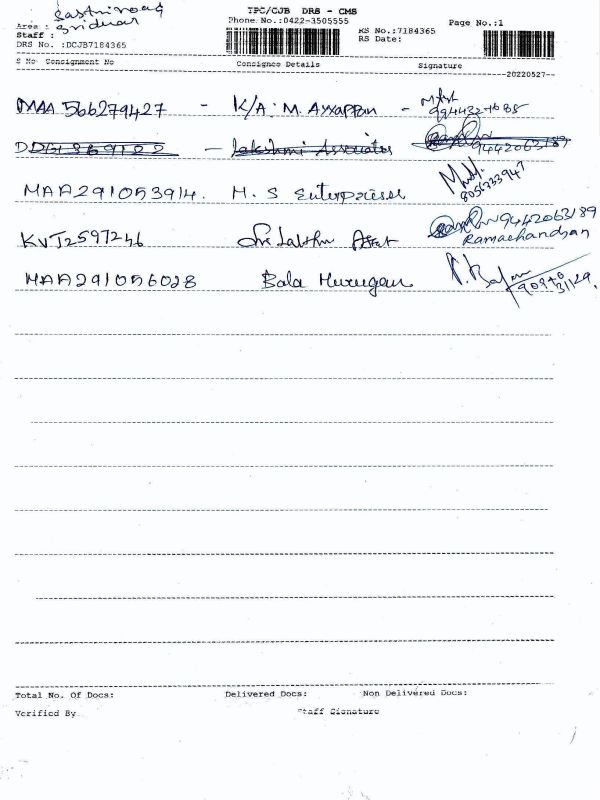 Sastri road TPC/CJB DRS - CMS
Area : Phone No.:0422-3505555 Page No.:1
Staff : Sridhar RS No.:7184365
DRS No. :DCJB7184365 RS Date:
S No Consignment No Consignee Details Signature
--20220527--
MAA 566279427 - K/A: M. Ayyappan -
- Lakshmi Associates 9442063189
MAA291053914. M. S Enterprises 8056733947
KVJ2597246 Sri Lakshmi 9442063189
Ramachandran
MAA291056028 Bala Murugan
31129.
Total No. Of Docs: Delivered Docs: Non Delivered Docs:
Verified By Staff Signature